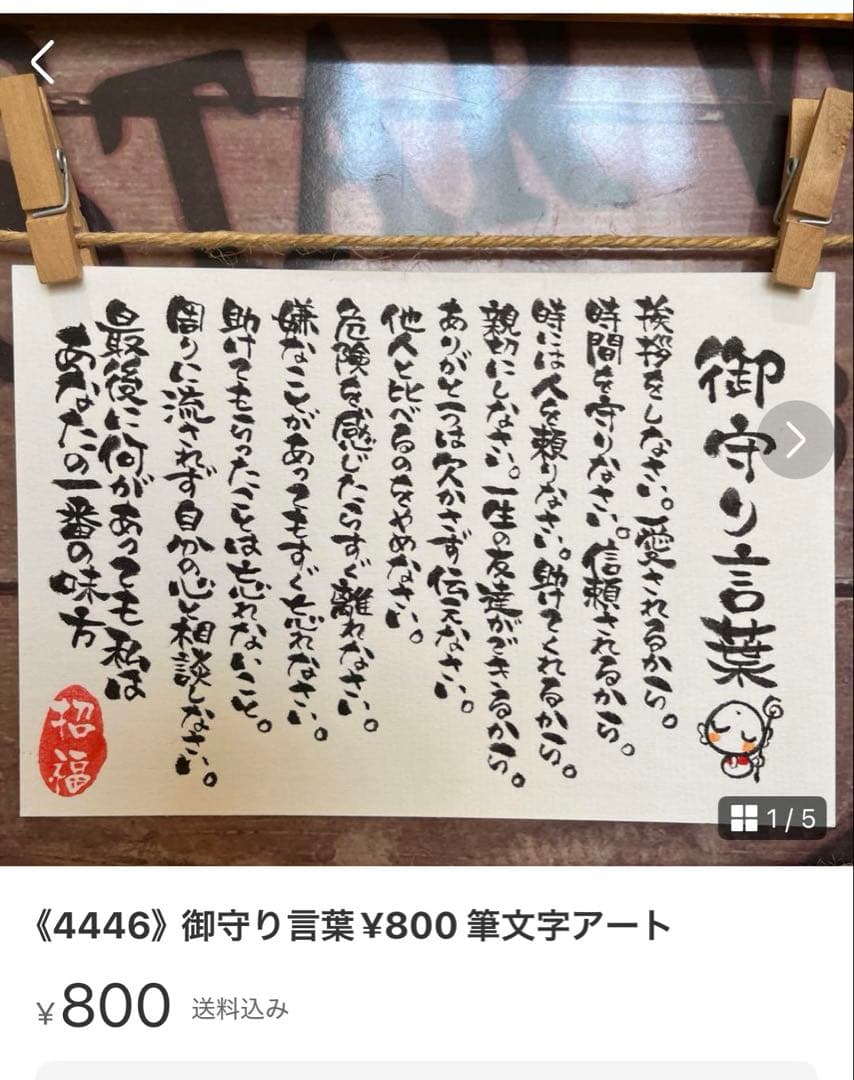 御守り言葉
挨拶をしなさい。愛されるから。
時間を守りなさい。信頼されるから。
時には人を頼りなさい。助けてくれるから。
親切にしなさい。一生の友達ができるから。
ありがとうは欠かさず伝えなさい。
他人と比べるのをやめなさい。
危険を感じたらすぐ離れなさい。
嫌なことがあってもすぐ忘れなさい。
助けてもらったことは忘れないこと。
周りに流されず自分の心と相談しなさい。
最後に何があっても私は
あなたの一番の味方
招福
1/5
《4446》御守り言葉¥800 筆文字アート
¥800 送料込み